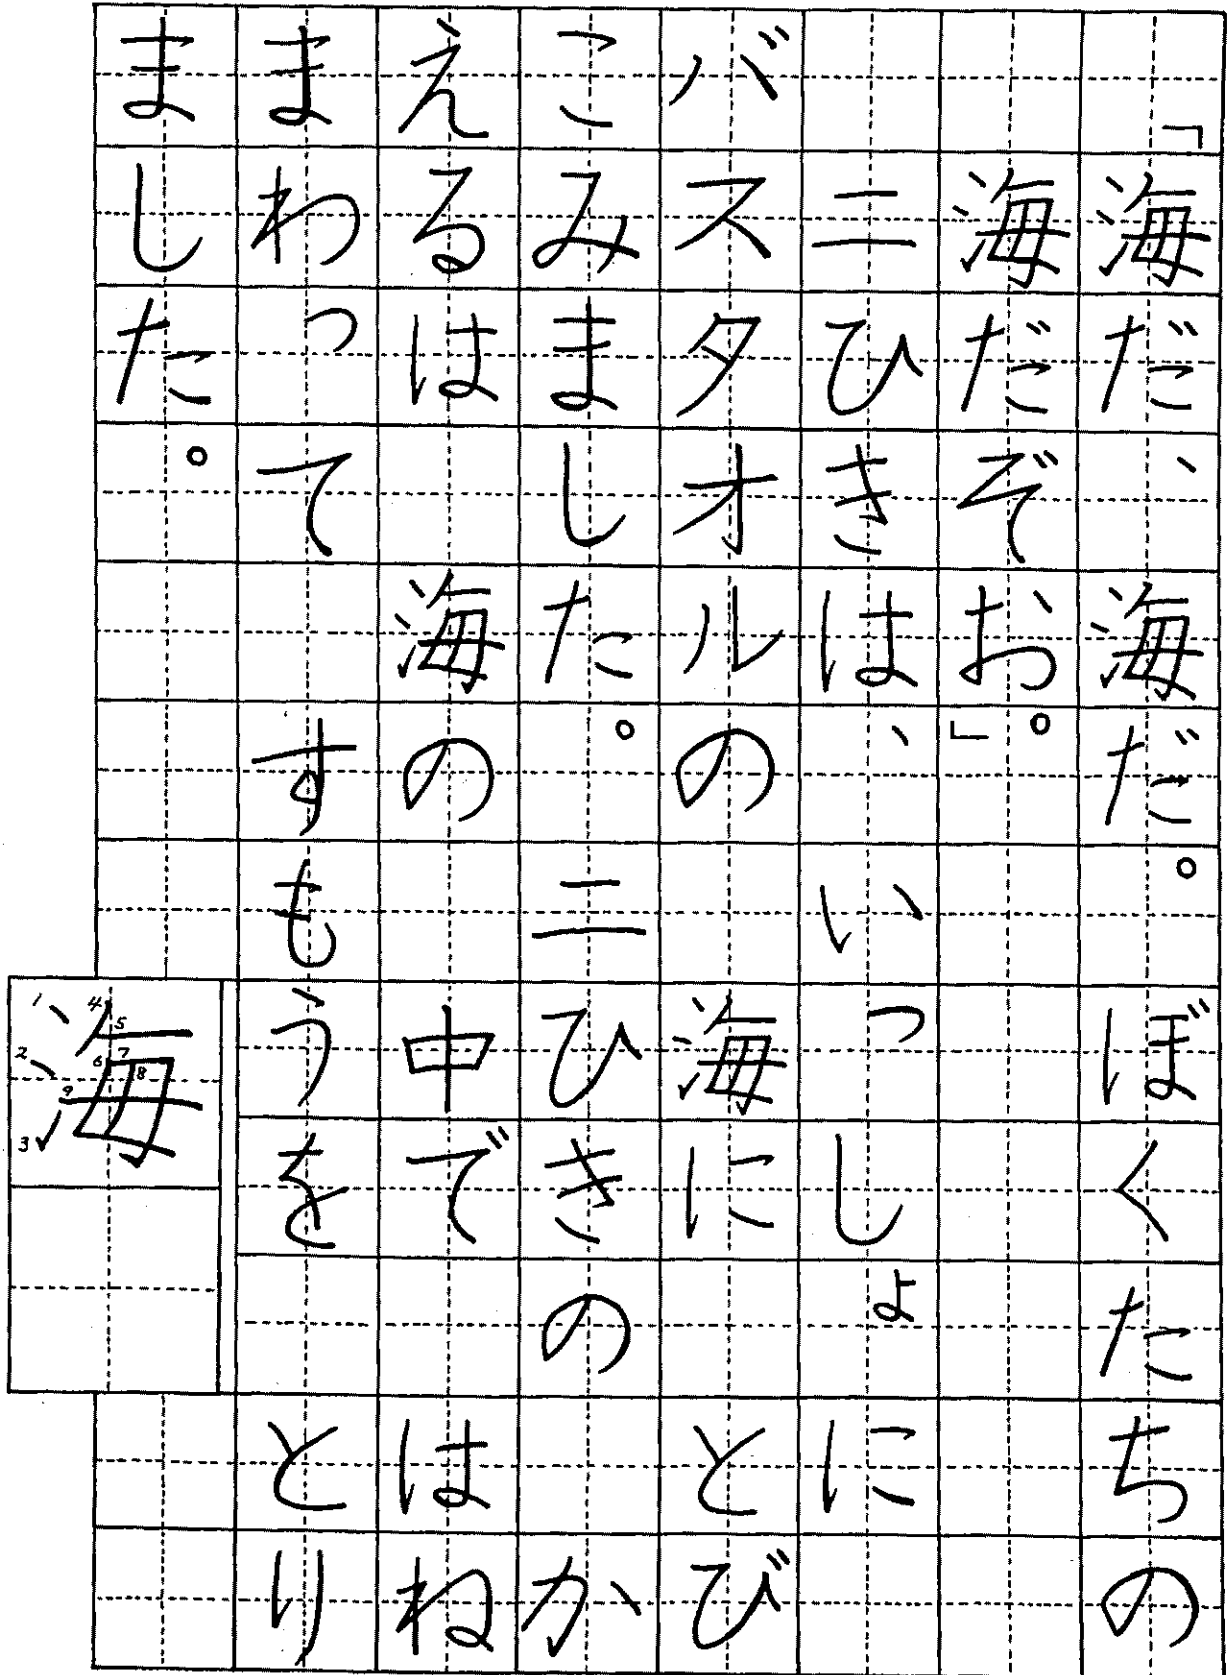 「海だ、海だ。ぼくたちの
海だぞお。」
二ひきは、いっしょに
バスタオルの　海に　とび
こみました。二ひきの　か
えるは　海の　中で　はね
まわって　すもうを　とり
ました。
海
1 2 3 4 5 6 7 8 9